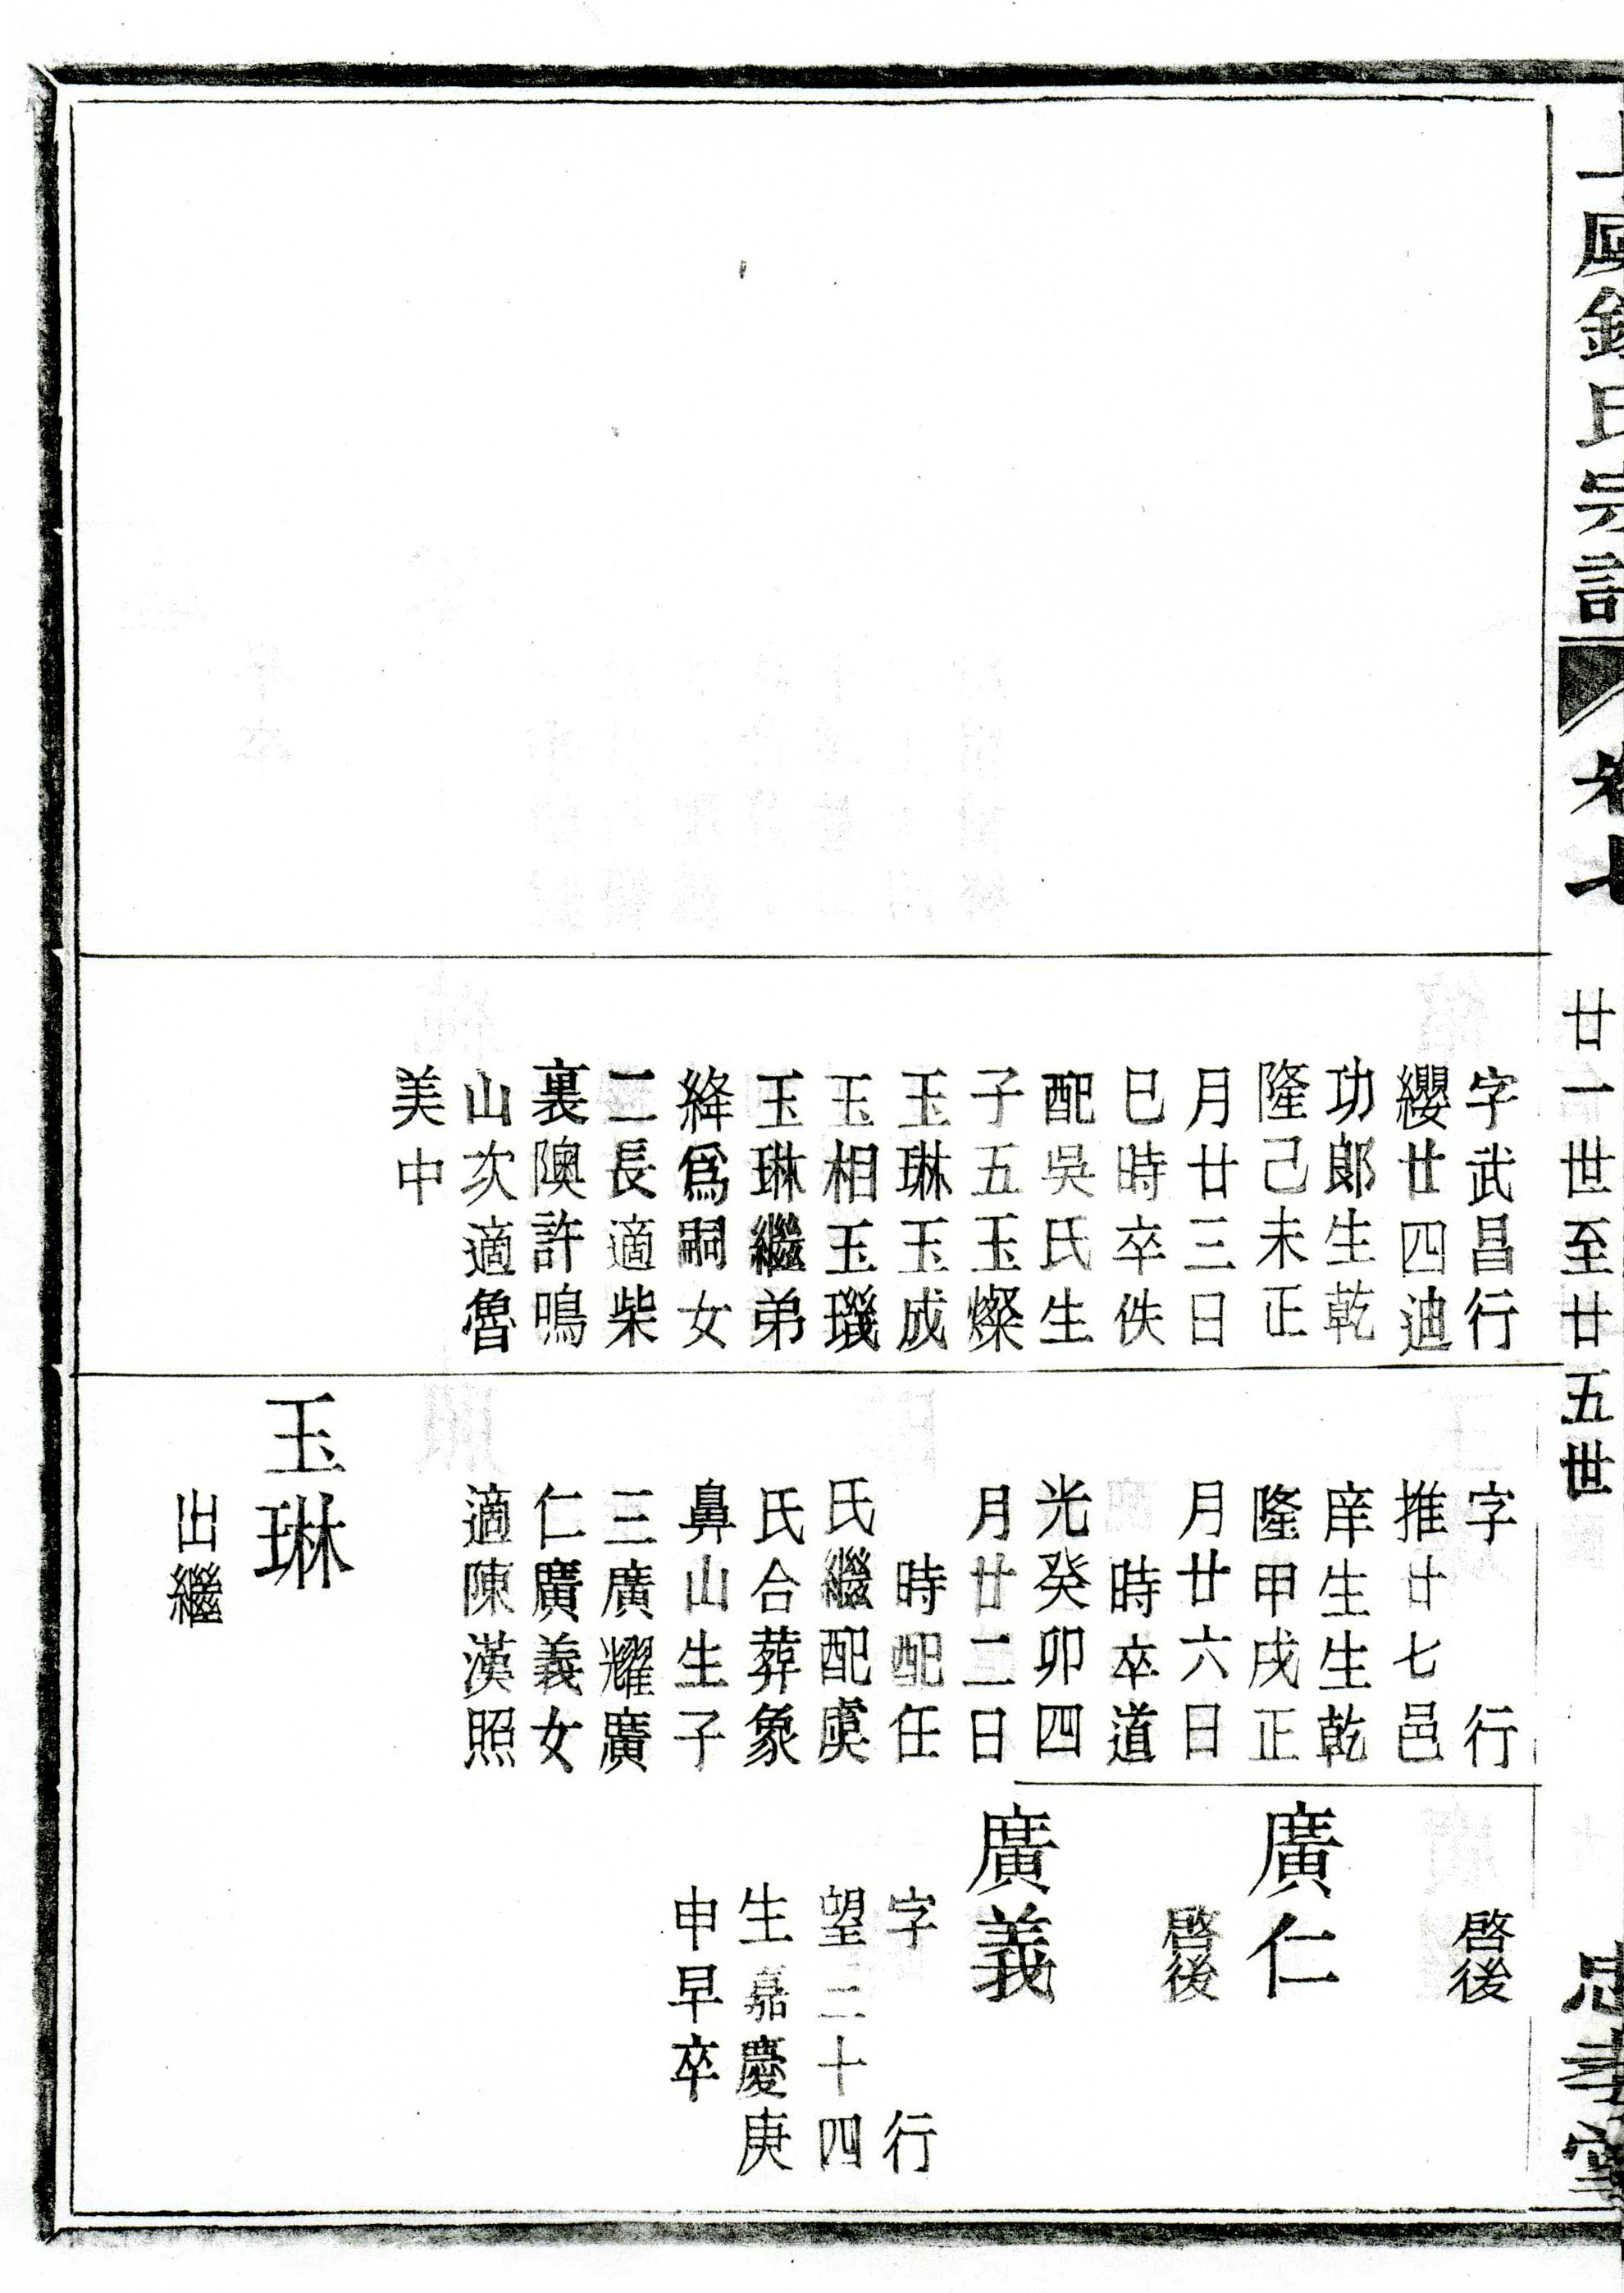 氏宗譜
卷七
廿一世至廿五世
忠孝堂
字武昌行
纓廿四迪
功郎生乾
隆己未正
月廿三日
巳時卒佚
配吳氏生
子五玉燦
玉琳玉成
玉相玉璣
玉琳繼弟
絳爲嗣女
二長適柴
裏隩許鳴
山次適魯
美中
字　　行
推廿七邑
庠生生乾
隆甲戌正
月廿六日
時卒道
光癸卯四
月廿二日
時配任
氏繼配虞
氏合葬象
鼻山生子
三廣耀廣
仁廣義女
適陳漢照
玉琳
出繼
啓後
廣仁
啓後
廣義
字　　行
望二十四
生嘉慶庚
申早卒